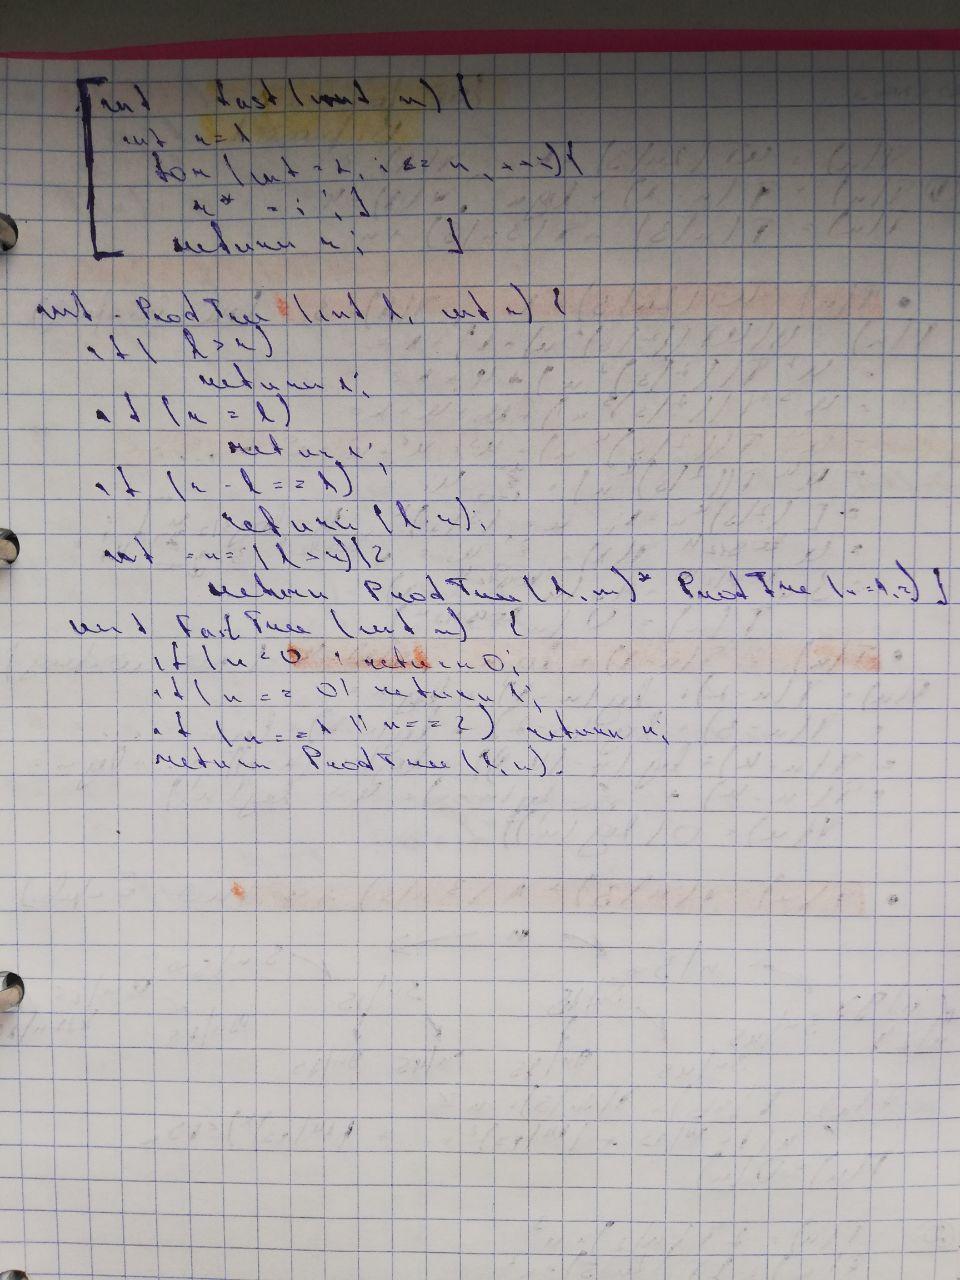 int fact(int n) {
int r=1
for (int = 2, i <= n, ++i) {
r* = i; }
return r; }
int ProdTree (int l, int r) {
if ( l > r)
return 1;
if (r = l)
return l;
if (r - l == 1)
return (l·r);
int = m = (l + r)/2
return ProdTree (l, m) * ProdTree (m + 1, r) }
int FactTree (int n) {
if (n < 0 return 0;
if (n == 0) return 1;
if (n == 1 || n == 2) return n;
return ProdTree (2, n).